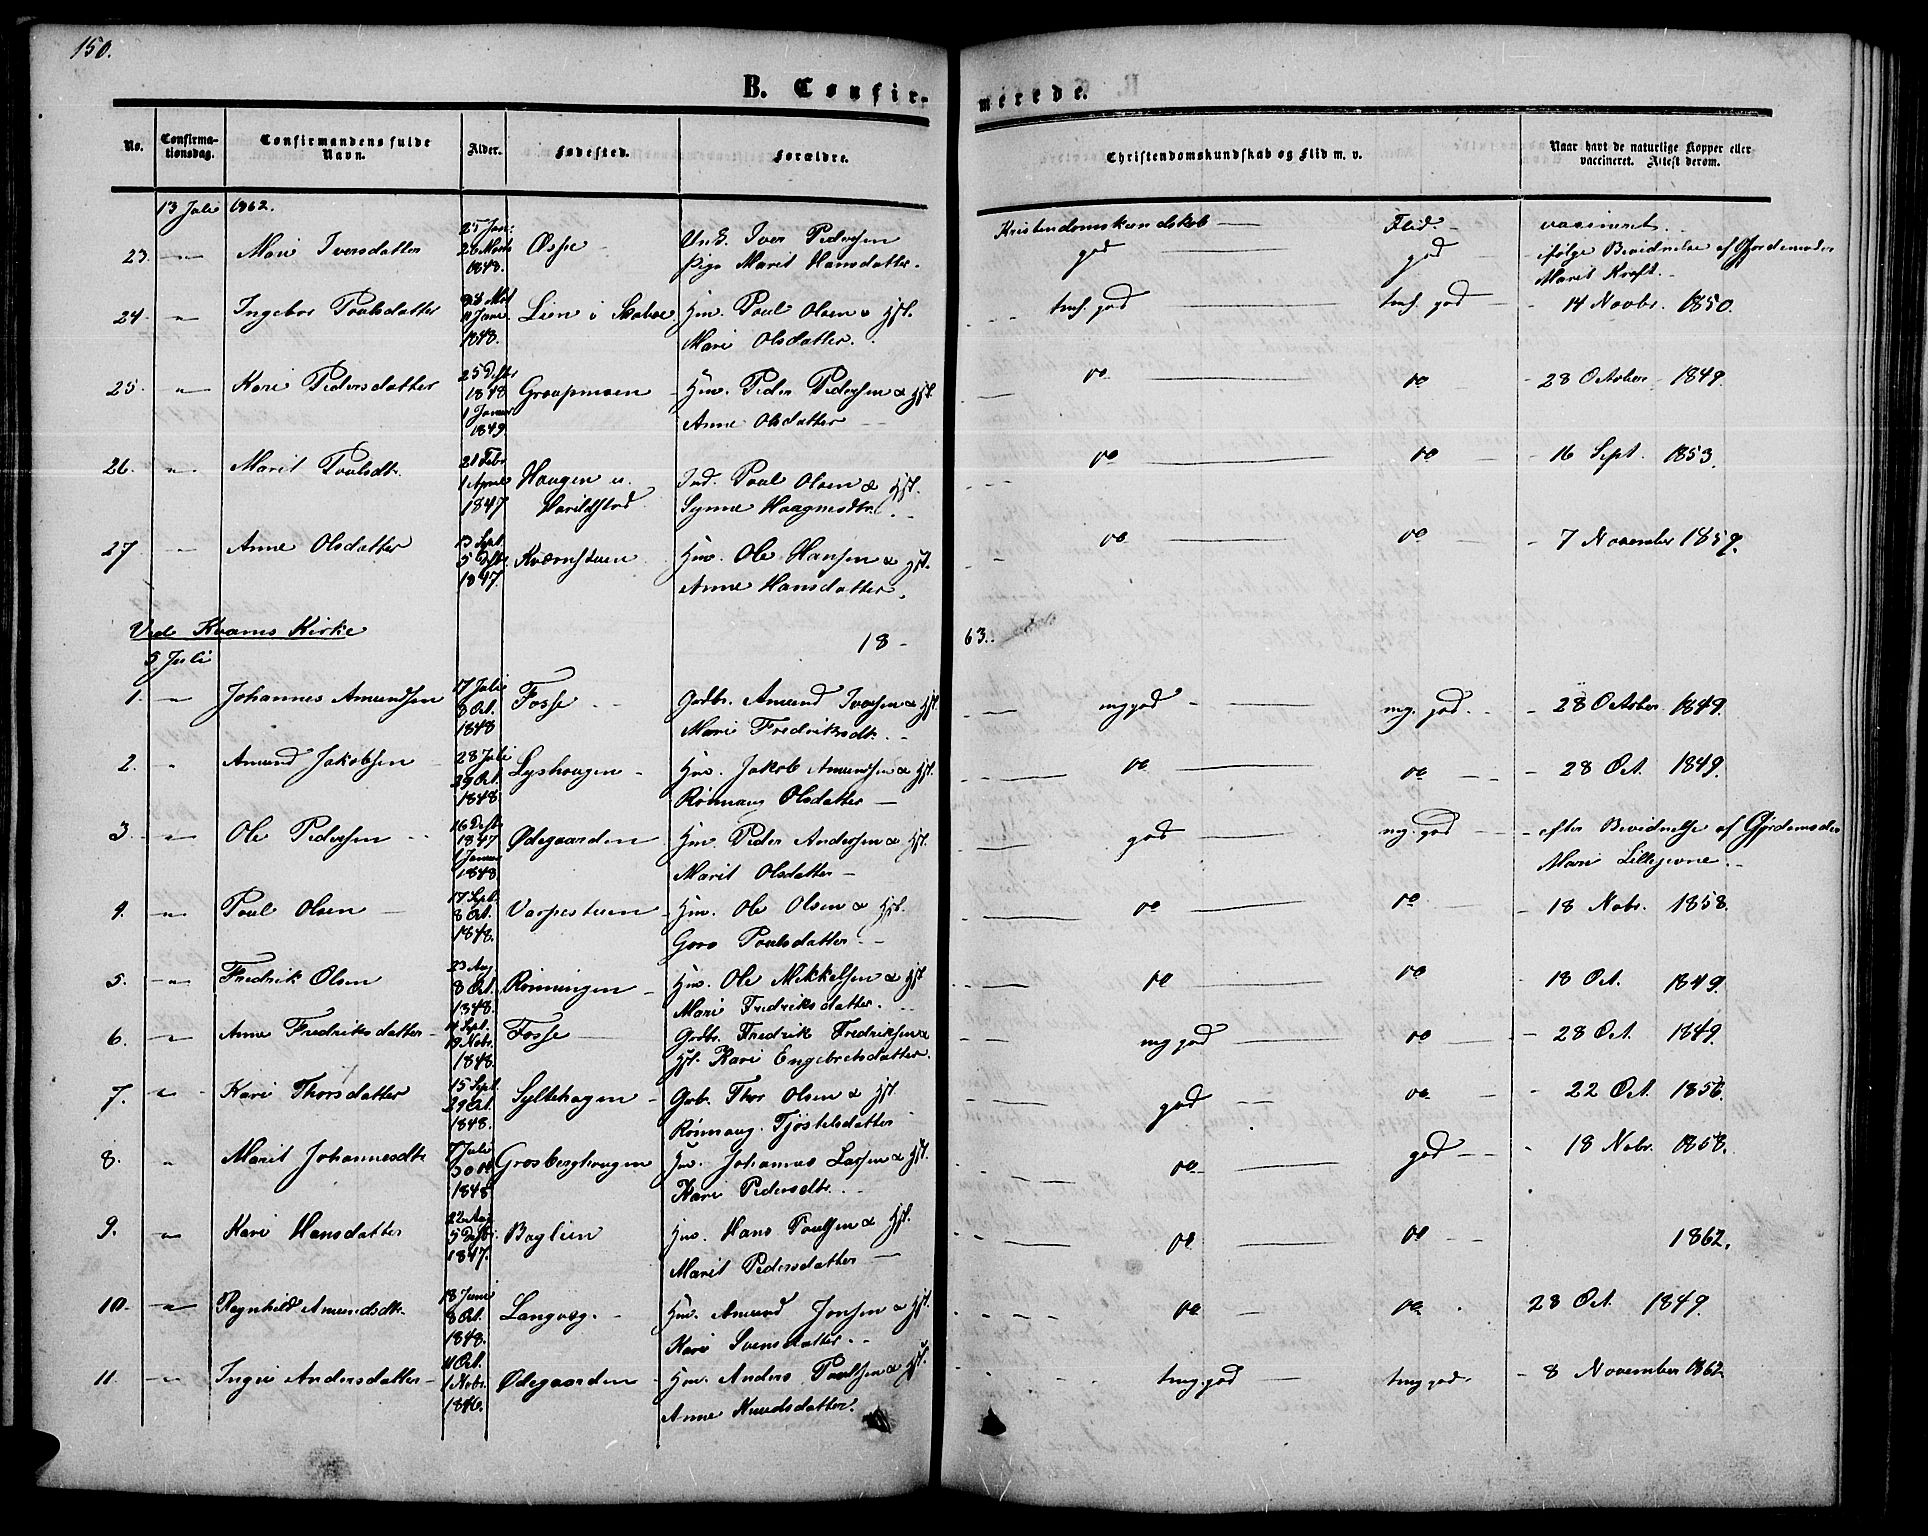 150.
B. Confir-
merede.
No.
Confirma-
tionsdag.
Confirmandens fulde
Navn.
Alder.
Fødested.
Forældre.
Christendomskundskab og Flid m. v.
Naar havt de naturlige Kopper eller
vaccineret. Attest derom.
13 Juli 1862.
Kristendomskundskab — Flid — vaccineret
23. " Mari Iversdatter 25 Jan: 26 Marts 1848. Øspe Unk. Iver Pedersen
Pige Marit Hansdatter. god god ifølge Bevidnelse af Gjordemoder
Marit Kraft.
24. " Ingebor Poulsdatter 11 Juni 1848. Lien i Skabo Hm. Poul Olsen & Hst.
Mari Olsdatter. tms. god tms. god 14 Novbr. 1850.
25. " Kari Pedersdatter 25 Decbr 1848 1 Januar 1849 Graupmoen Hm. Peder Pedersen & Hst.
Anne Olsdatter do do 28 October 1849.
26. " Marit Poulsdtr. 21 Febr 1 April 1847 Haugen u. Harildstad Ind. Poul Olsen & Hst.
Synne Haagensdtr. do do 16 Sept. 1853.
27. " Anne Olsdatter 13 Sept. 5 Decbr 1847. Kværnstuen Hm. Ole Hansen & Hst.
Anne Hansdatter. do do 7 November 1859.
Ved Kvams Kirke 18 - 63.
5 Juli
1. " Johannes Amundsen 17 Juli 8 Oct. 1848 Fosse Gdbr. Amund Iversen & Hst.
Mari Fredriksdtr. mg god mg. god. 28 October 1849.
2. " Amund Jakobsen 28 Juli 29 Oct. 1848 Lyshaugen Hm. Jakob Amundsen & Hst.
Rønnaug Olsdatter do do 28 Oct. 1849.
3. " Ole Pedersen 16 Decbr 1847 1 Januar 1848 Ødegaarden Hm. Peder Andersen & Hst.
Marit Olsdatter god mg. god efter Bevidnelse af Gjordemoder
Mari Lillejevne.
4. " Poul Olsen 17 Sept. 8 Oct. 1848. Varpestuen Hm. Ole Olsen & Hst.
Goro Poulsdatter do do 18 Nobr. 1858.
5. " Fredrik Olsen 23 Aug 8 Oct. 1848. Rønningen Hm. Ole Mikkelsen & Hst.
Mari Fredriksdatter. do do 18 Oct. 1849.
6. " Anne Fredriksdatter 19 Nobr. 1848. Fosse Gdbr. Fredrik Fredriksen &
Hst. Kari Engebretsdatter. mg god do 28 Oct. 1849.
7. " Kari Thorsdatter 15 Sept. 29 Oct. 1848. Syltehagen Gdb. Thor Olsen & Hst.
Rønnaug Tjøstelsdatter god do 22 Oct. 1856.
8. " Marit Johannesdtr 7 Juli 1848 Grosberghaugen Hm. Johannes Larsen & Hst.
Kari Pedersdtr. do god 18 Nobr. 1858.
9. " Kari Hansdatter 22 Aug 5 Decbr. 1847. Baglien Hm. Hans Poulsen & Hst.
Marit Pedersdatter do do 1862.
10. " Ragnhild Amundsdtr. 18 Juni 8 Oct. 1848. Langvæg. Hm. Amund Jonsen & Hst.
Kari Svensdatter do do 28 Oct. 1849.
11. " Ingri Andersdatter 11 Oct. 1 Nobr. 1846. Ødegaarden Hm. Anders Poulsen & Hst.
Anne Knudsdatter. tmg god tmg god 8 November 1862